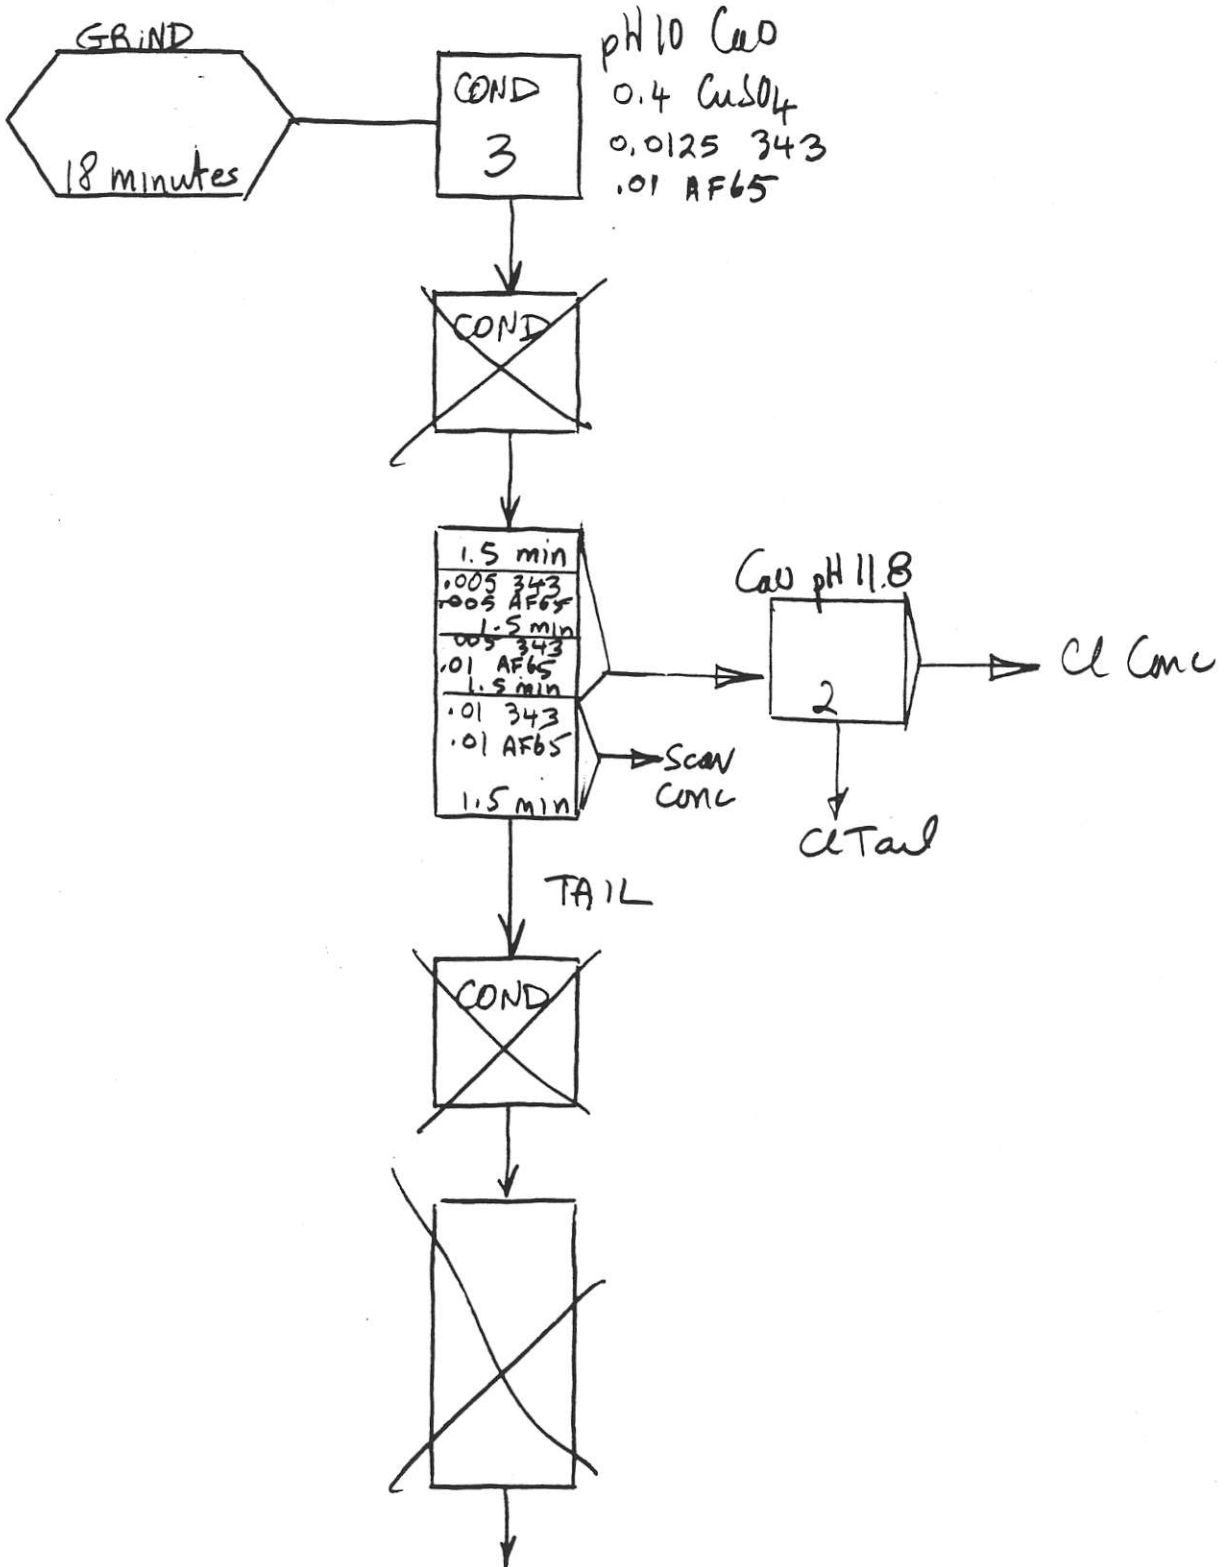 GRIND
18 minutes
COND
3
pH 10 CaO
0.4 CuSO4
0.0125 343
.01 AF65
COND
1.5 min
.005 343
.005 AF65
1.5 min
.005 343
.01 AF65
1.5 min
.01 343
.01 AF65
1.5 min
CaO pH 11.8
2
Cl Conc
Scav
Conc
Cl Tail
TAIL
COND